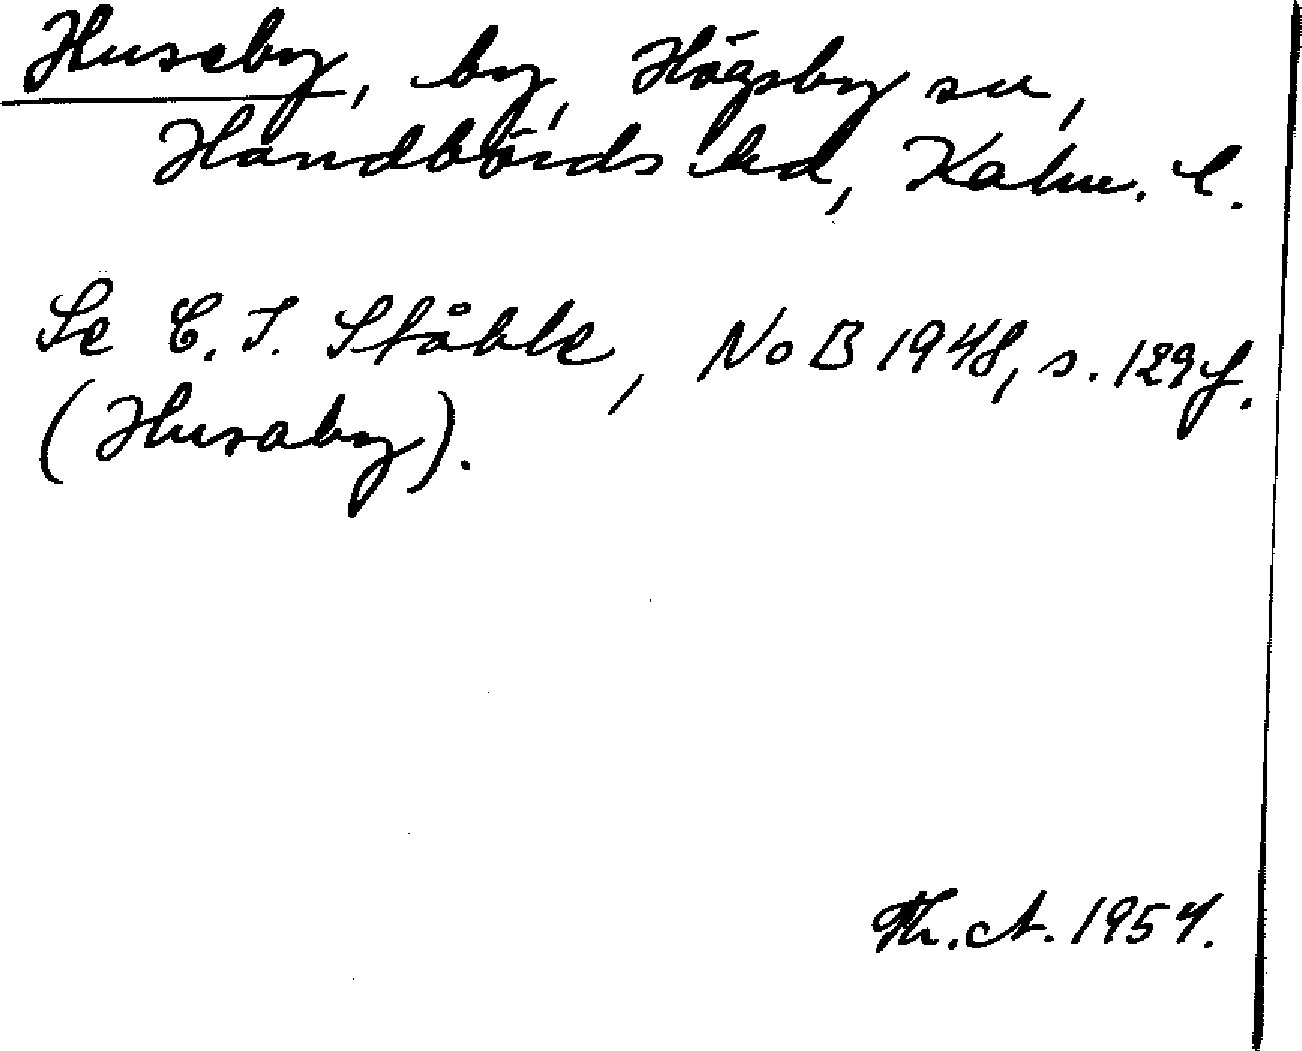 Huseby, by, Högsby sn,
Handbörds hd, Kalm. l.
Se C. I. Ståhle, NoB 1948, s. 129 f.
(Husaby).
Th. A. 1954.